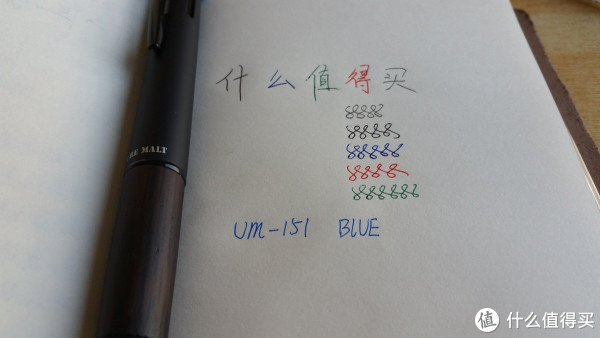 什么值得买
RE MALT
UM-151 BLUE
值 什么值得买